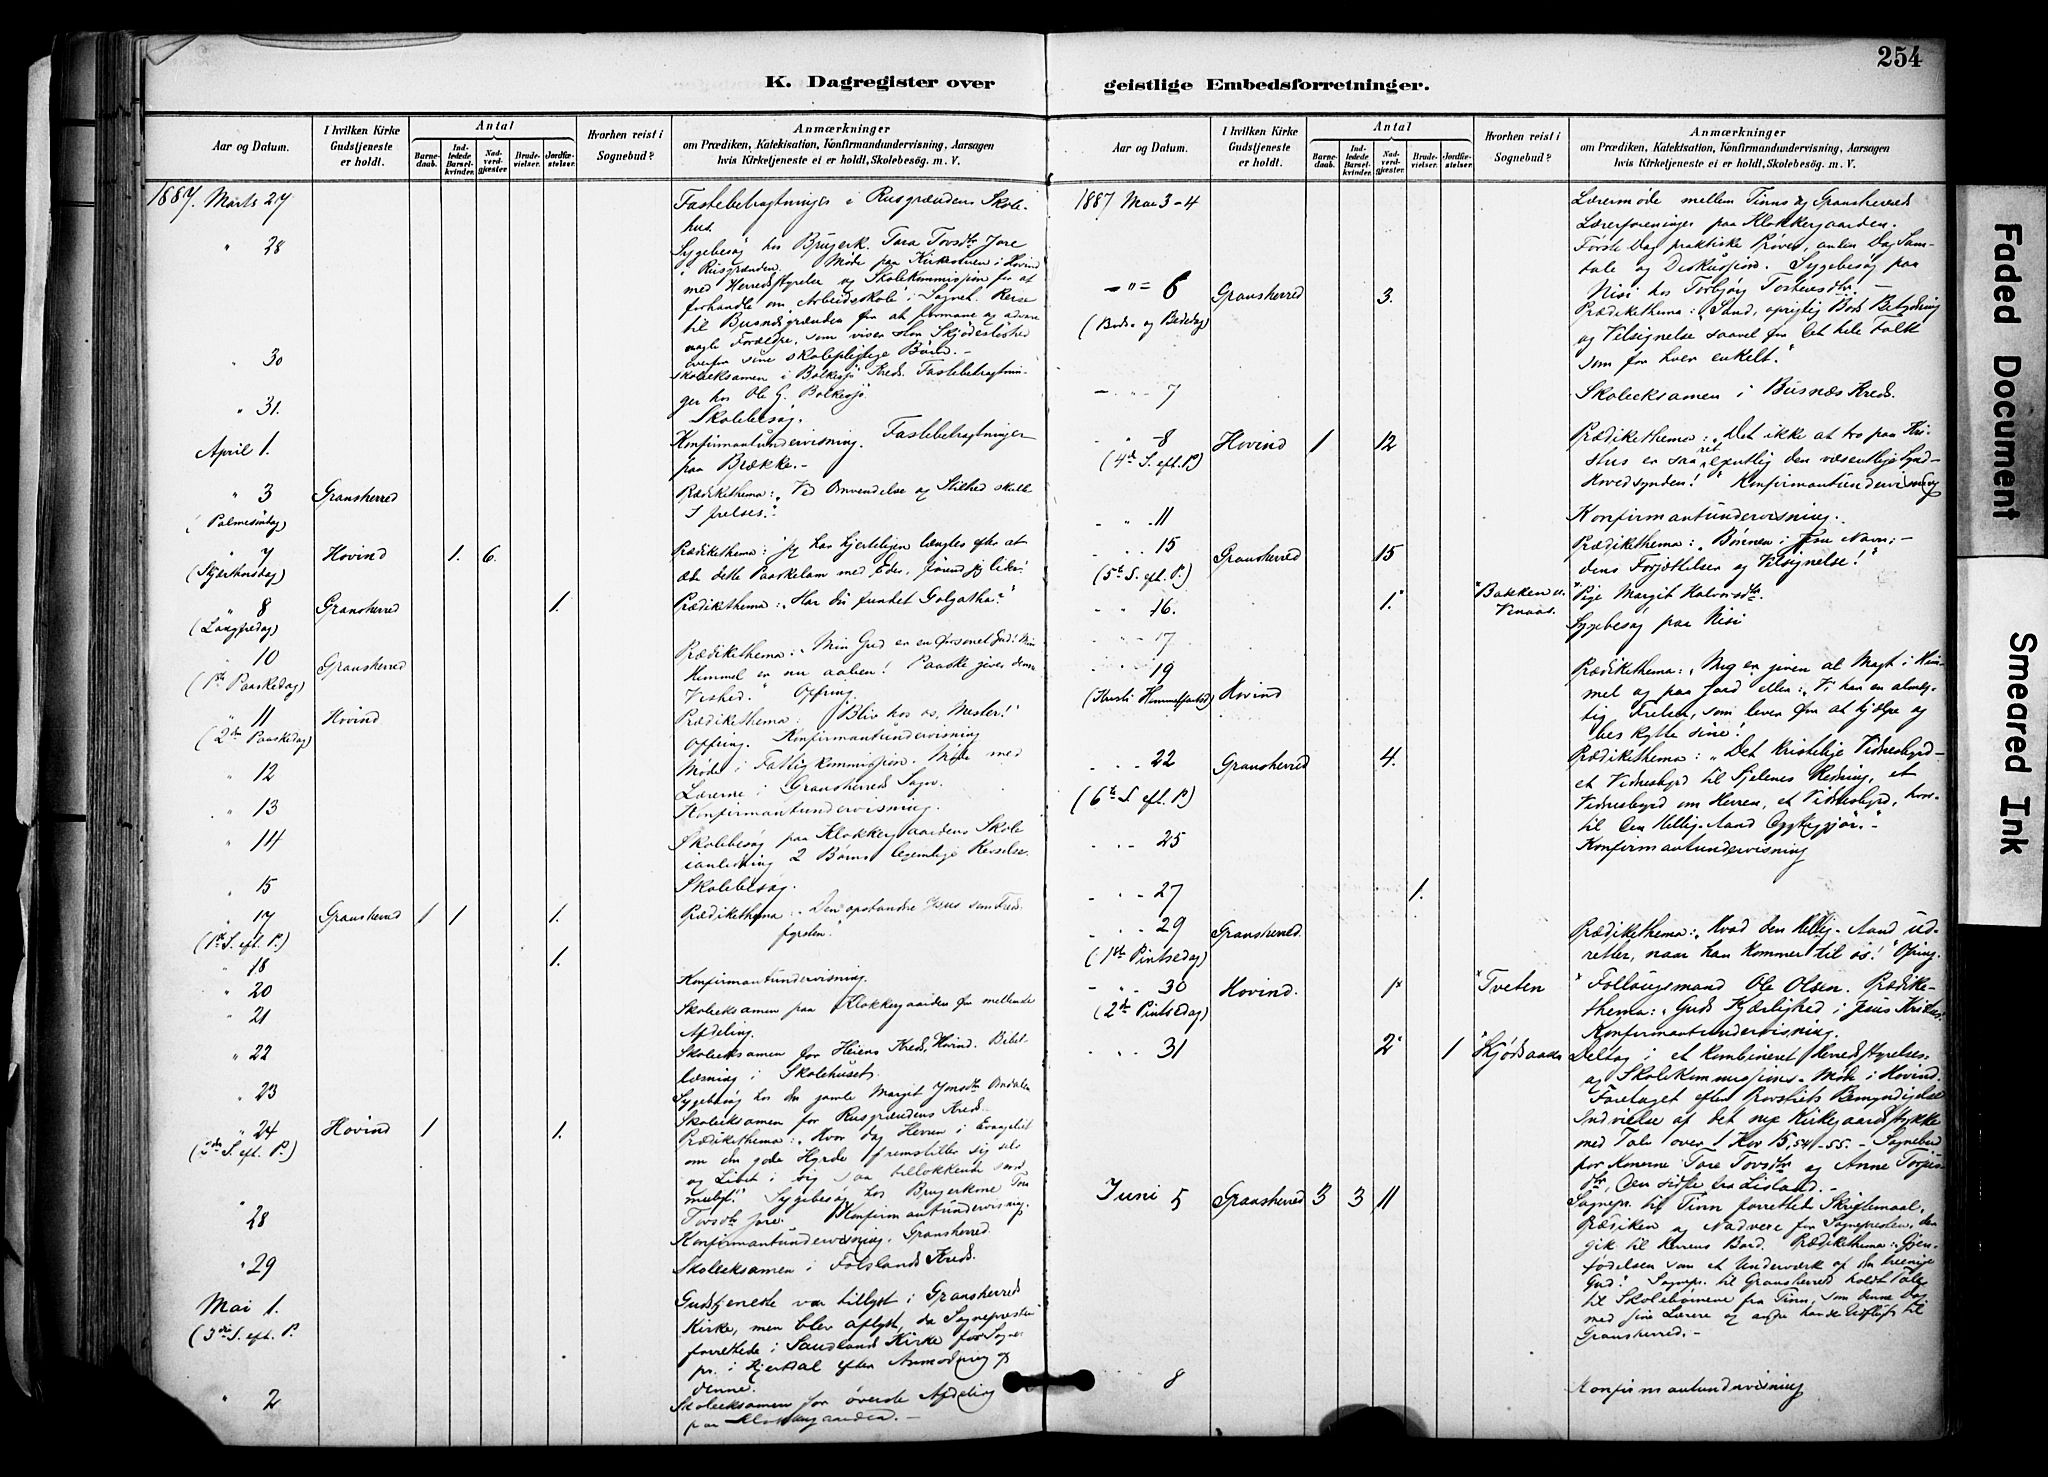 254
K. Dagregister over geistlige Embedsforretninger.
Aar og Datum.
I hvilken Kirke Gudstjeneste er holdt.
Antal
Barnedaab.
Indledede Barselkvinder.
Nadverdgjæster
Brudevielser.
Jordfæstelser.
Hvorhen reist i Sognebud?
Anmærkninger
om Prædiken, Katekisation, Konfirmandundervisning, Aarsagen
hvis Kirketjeneste ei er holdt, Skolebesög. m. V.
1887. Marts 27 Fastebetragtninger i Rusgrændens Skole-
hus.
" 28 Sygebesög hos Brugerk. Tara Tovsdtr Jore
i Rusgrænden. Møde paa Kirkestuen i Hovind
med Herredsstyrelse og Skolekommission for at
forhandle om Arbeidsskole i Sognet. Reise
til Busnæsgrænden for at formane og advare
nogle Forældre, som viser stor Skjødesløshed
overfor sine skolepligtige Børn. -
" 30 Skoleeksamen i Bolkesjø Kreds. Fastebetragtnin-
ger hos Ole G. Bolkesjø.
" 31. Skolebesög.
April 1. Konfirmantundervisning. Fastebetragtninger
paa Brække. -
" 3 Gransherred Prædikethema: "Ved Omvendelse og Stilhed skulle
(Palmesöndag) I frelses."
" 7 Hovind 1. 6. Prædikethema: "Jeg har hjerteligen længtes efter at
(Skjærthorsdag) æde dette Paaskelam med Eder, førend jeg lider."
" 8 Gransherred 1. Prædikethema: "Har du fundet Golgatha?"
(Langfredag)
" 10 Gransherred Prædikethema: "Min Gud er en forsonet Gud! Min
(1ste Paaskedag) Himmel er nu aaben! Paaske giver denne
Vished." Ofring.
" 11 Hovind Prædikethema: "Bliv hos os, Mester!"
(2den Paaskedag) Ofring. Konfirmantundervisning
" 12 Møde i Fattigkommission. Møde med
Lærerne i Gransherreds Sogn.
" 13 Konfirmantundervisning.
" 14 Skolebesög paa Klokkergaardens Skole
ianledning 2 Børns legemlige Revselse.
" 15 Skolebesög.
" 17 Gransherred 1 1 1. Prædikethema: "Den opstandne Jesus som Freds-
(1ste S. eft. P.) fyrsten."
" 18 1.
" 20 Konfirmantundervisning.
" 21 Skoleeksamen paa Klokkergaarden for mellemste
Afdeling.
" 22 Skoleeksamen for Heiens Kreds, Hovind. Bibel-
læsning i Skolehuset.
" 23 Sygebesög hos den gamle Margit Jonsdtr Bødalen
Skoleeksamen for Rusgrændens Kreds.
" 24 Hovind 1 1. Prædikethema: "Hvor dog Herren i Evangeliet
(2den S. eft. P.) om den gode Hyrde fremstiller sig selv
og Livet i sig saa tillokkende som
muligt!" Sygebesög hos Brugerkone Tora
Tovsdtr Jore. Konfirmantundervisning.
" 28 Konfirmantundervisning. Gransherred.
" 29 Skoleeksamen i Folslands Kreds.
Mai 1. Gudstjeneste var tillyst i Gransherreds
(3die S. eft. P. Kirke, men blev aflyst, da Sognepresten
forrettede i Saudlands Kirke for Sogne-
pr. i Hjertdal efter Anmodning af
denne.
" 2 Skoleeksamen for överste Afdeling
paa Klokkergaarden. -
Aar og Datum.
I hvilken Kirke Gudstjeneste er holdt.
Antal
Barnedaab.
Indledede Barselkvinder.
Nadverdgjæster
Brudevielser.
Jordfæstelser.
Hvorhen reist i Sognebud?
Anmærkninger
om Prædiken, Katekisation, Konfirmandundervisning, Aarsagen
hvis Kirketjeneste ei er holdt, Skolebesög. m. V.
1887 Mai 3-4 Lærermøde mellem Tinns og Gransherreds
Lærerforeninger paa Klokkergaarden.
Første Dag praktiske Prøver, anden Dag Sam-
tale og Diskussion. Sygebesög paa
Nisi hos Torbjörg Tostensdtr.
- " - 6 Gransherred 3. Prædikethema: "Sand, oprigtig Bods Betydning
(Bods- og Bededag) og Velsignelse saavel for det hele Folk
som for hver enkelt."
- " - 7 Skoleeksamen i Busnæs Kreds.
- " - 8 Hovind 1 12 Prædikethema: "Det ikke at tro paa Kri-
(4de S. eft. P.) stus er saa ret egentlig den væsentlige Synd-
Hovedsynden!" Konfirmantundervisning
- " 11 Konfirmantundervisning.
- " 15 Gransherred 15 Prædikethema: "Bønnen i Jesu Navn; -
(5te S. eft. P.) dens Forjættelser og Velsignelse!"
- " 16. 1." "Bakken u. Venaas. "Pige Margit Halvorsdtr.
- " 17 Sygebesög paa Nisi
- " 19 Hovind Prædikethema: "Mig er given al Magt i Him-
(Kristi Himmelfartsd) mel og paa Jord eller: "Vi har en almæg-
tig Frelser, som lever for at hjælpe og
beskytte sine!
- " 22 Gransherred 4. Prædikethema: "Det kristelige Vidnesbyrd-
(6te S. eft. P.) et Vidnesbyrd til Sjelenes Redning, et
Vidnesbyrd om Herren, et Vidnesbyrd, hvor-
til den Hellig-Aand dygtiggjør." -
- " 25 Konfirmantundervisning
- " 27 1.
- " 29 Gransherred. Prædikethema: "Hvad den Hellig-Aand ud-
(1ste Pintsedag) retter, naar han kommer til os!" Ofring.
- " 30 Hovind. 1" "Tveten " Follougsmand Ole Olsen. Prædike-
(2den Pintsedag) thema: "Guds Kjærlighed i Jesus Kristus."
Konfirmantundervisning.
- " 31 2" 1 Deltog i et kombineret Herredsstyrelses-
og Skolekommissions-Møde i Hovind.
Foretaget efter Provstiets Bemyndigelse
Indvielse af det nye Kirkegaardsstykke
med Tale over 1 Kor 15, 54-55. - Sognebud
for Konerne Tore Tovsdtr og Anne Torjus-
dtr, den sidste fra Lisland. -
Juni 5 Gransherred 3 3 11 Sognepr. til Tinn forrettet Skriftemaal,
Prædiken og Nadvere for Sognepresten, der
gik til Herrens Bord. Prædikethema: "Gjen-
fødelsen som et Underværk af den treenige
Gud." Sognepr. til Gransherred holdt Tale
til Skolebørnene fra Tinn, som denne Dag
med sine Lærere og andre havde Udflugt til
Gransherred. -
8 Konfirmantundervisning
Faded Document
Smeared Ink